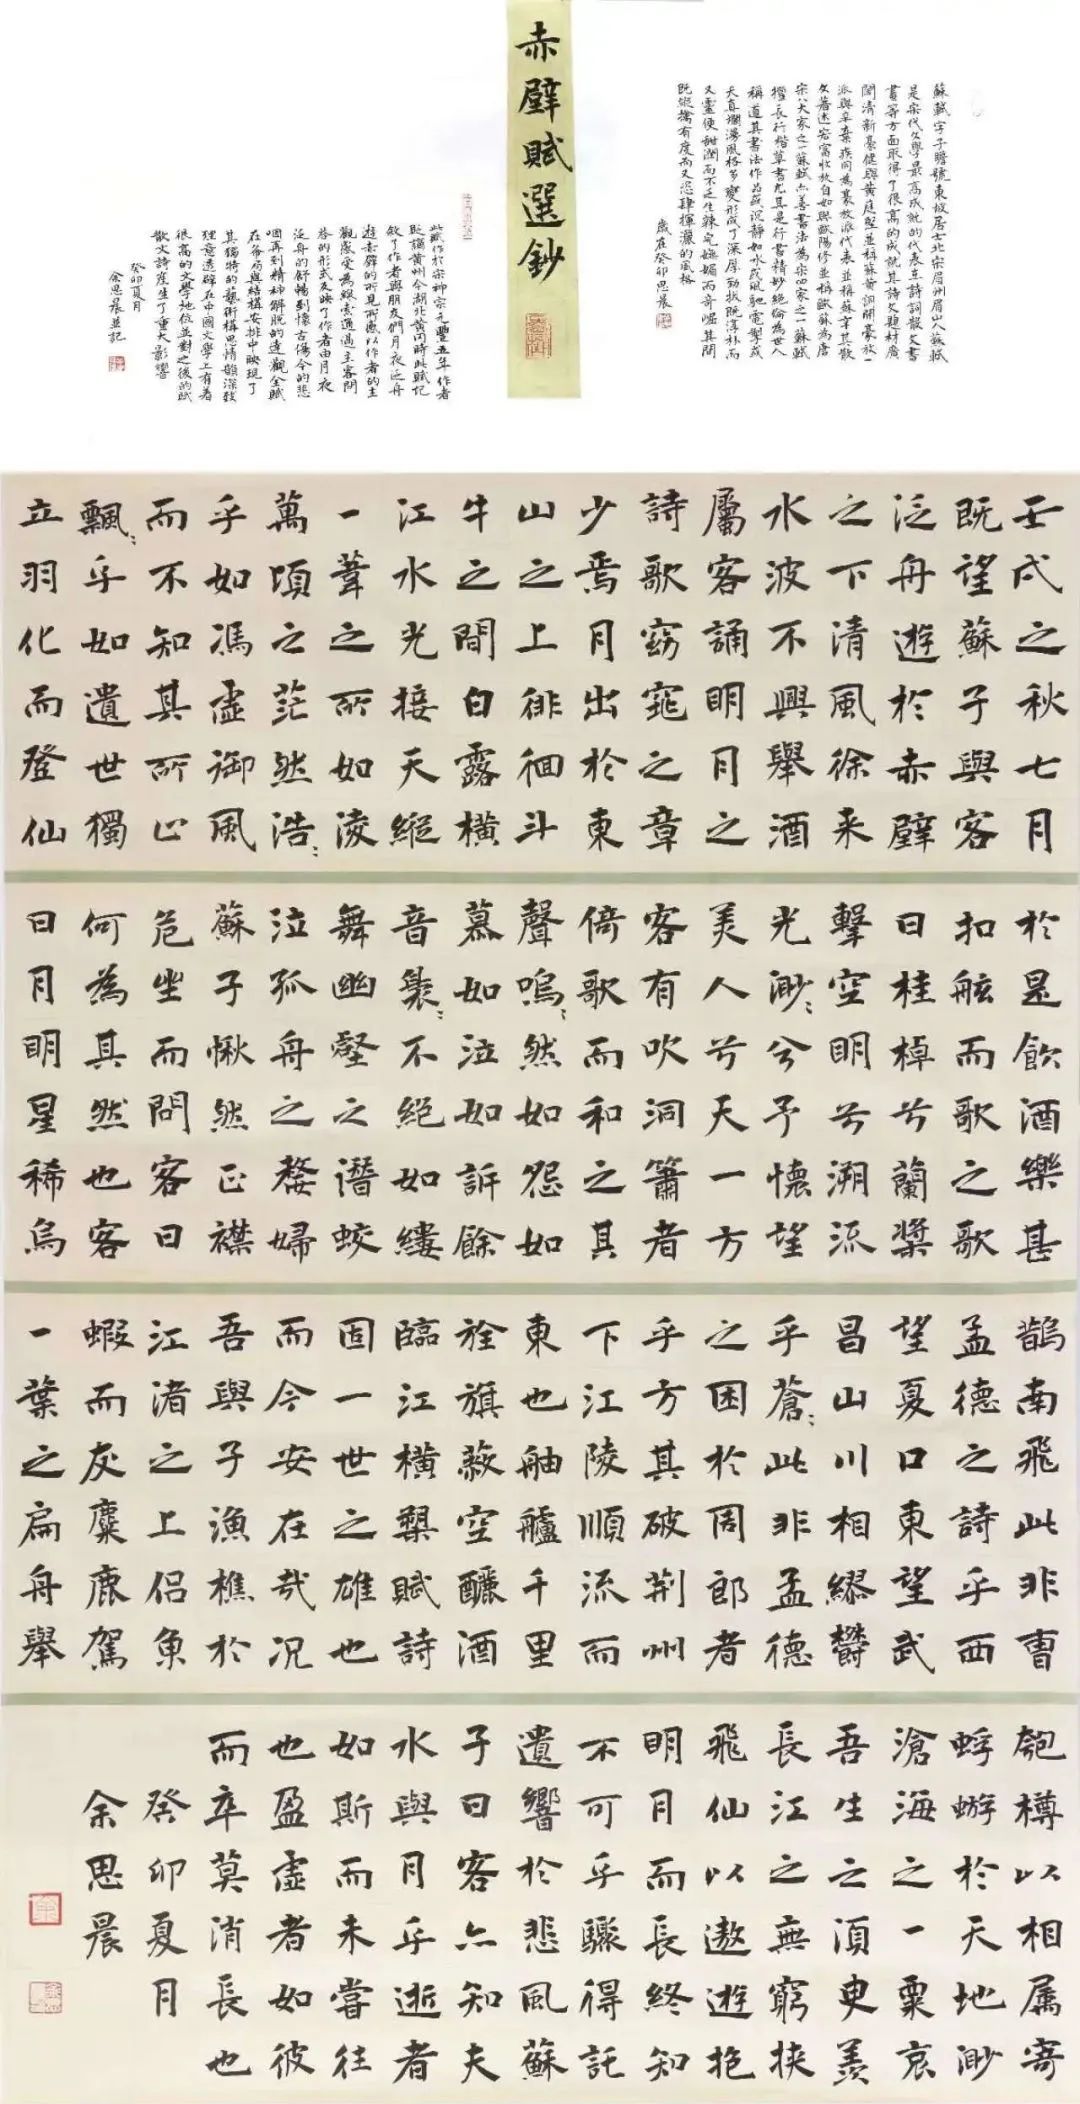 蘇軾字子瞻號東坡居士北宋眉州眉山人蘇軾
是宋代文學最高成就的代表在詩詞散文書
畫等方面取得了很高的成就其詩文題材廣
闊清新豪健與黃庭堅並稱蘇黃詞開豪放一
派與辛棄疾同為豪放派代表並稱蘇辛其散
文著述宏富收放自如與歐陽修並稱歐蘇為唐
宋八大家之一蘇軾亦善書法為宋四家之一蘇軾
擅長行楷草書尤其是行書精妙絕倫為世人
稱道其書法作品或沉靜如水或風馳電掣或
天真爛漫風格多變形成了深厚勁拔既淳朴而
又靈便甜潤而不乏生辣宅嫵媚而奇崛其間
既縱擒有度而又恣肆揮灑的風格
歲在癸卯思晨
赤壁賦選鈔
此賦作於宋神宗元豐五年作者
貶謫黃州今湖北黃岡時此賦記
敘了作者與朋友們月夜泛舟
遊赤壁的所見所感以作者的主
觀感受為線索通過主客問
答的形式反映了作者由月夜
泛舟的舒暢到懷古傷今的悲
咽再到精神解脫的達觀全賦
在布局與結構安排中映現了
其獨特的藝術構思情韻深致
理意透辟在中國文學上有着
很高的文學地位並對之後的賦
散文詩產生了重大影響
癸卯夏月
余思晨並記
壬戌之秋七月
既望蘇子與客
泛舟遊於赤壁
之下清風徐来
水波不興舉酒
屬客誦明月之
詩歌窈窕之章
少焉月出於東
山之上徘徊斗
牛之間白露橫
江水光接天縱
一葦之所如淩
萬頃之茫然浩〻
乎如馮虛御風
而不知其所止
飄〻乎如遺世獨
立羽化而登仙
於是飲酒樂甚
扣舷而歌之歌
曰桂棹兮蘭槳
擊空明兮溯流
光渺〻兮予懷望
美人兮天一方
客有吹洞簫者
倚歌而和之其
聲嗚〻然如怨如
慕如泣如訴餘
音裊〻不絕如縷
舞幽壑之潛蛟
泣孤舟之嫠婦
蘇子愀然正襟
危坐而問客曰
何為其然也客
曰月明星稀烏
鵲南飛此非曹
孟德之詩乎西
望夏口東望武
昌山川相繆鬱
乎蒼〻此非孟德
之困於周郎者
乎方其破荊州
下江陵順流而
東也舳艫千里
旌旗蔽空釃酒
臨江橫槊賦詩
固一世之雄也
而今安在哉況
吾與子漁樵於
江渚之上侶魚
蝦而友麋鹿駕
一葉之扁舟舉
匏樽以相属寄
蜉蝣於天地渺
滄海之一粟哀
吾生之須臾羨
長江之無窮挾
飛仙以遨遊抱
明月而長終知
不可乎驟得託
遺響於悲風蘇
子曰客亦知夫
水與月乎逝者
如斯而未嘗往
也盈虛者如彼
而卒莫消長也
癸卯夏月
余思晨